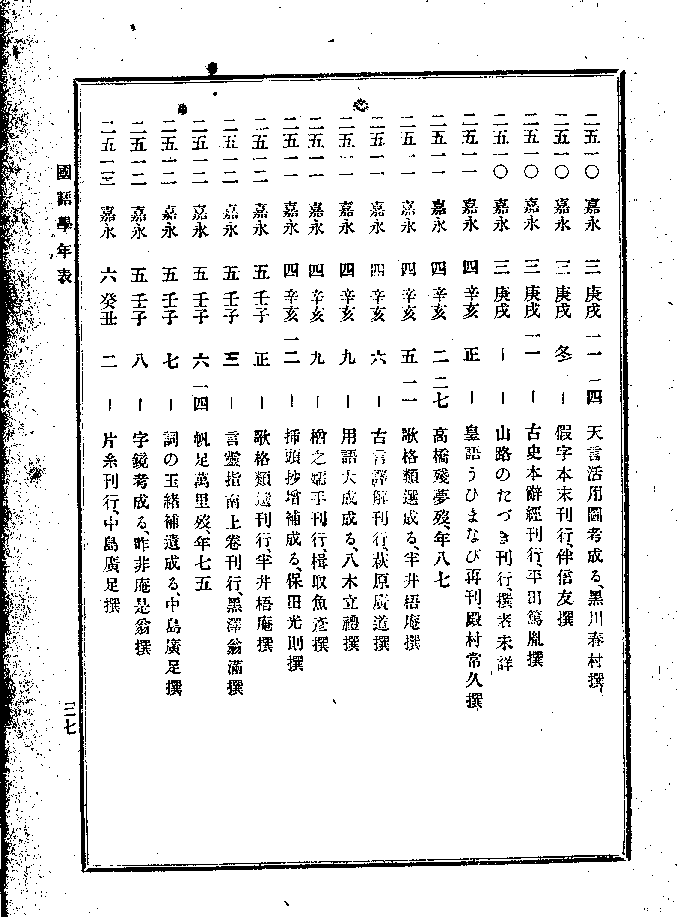 二五一〇 嘉永 三 庚戌 一一 二四 天言活用圖考成る、黑川春村撰、
二五一〇 嘉永 三 庚戌 冬 ー 假字本末刊行、伴信友撰
二五一〇 嘉永 三 庚戌 一一 ー 古史本辭經刊行、平田篤胤撰
二五一〇 嘉永 三 庚戌 ー ー 山路のたづき刊行、撰者未詳
二五一一 嘉永 四 辛亥 正 ー 皇語うひまなび再刊、殿村常久撰、
二五一一 嘉永 四 辛亥 二 二七 高橋殘夢歿、年八七
二五一一 嘉永 四 辛亥 五 二一 歌格類選成る、半井梧庵撰
二五一一 嘉永 四 辛亥 六 ー 古言譯解刊行、萩原廣道撰
二五一一 嘉永 四 辛亥 九 ー 用語大成成る、八木立禮撰
二五一一 嘉永 四 辛亥 九 ー 楢之嬬手刊行、楫取魚彥撰
二五一一 嘉永 四 辛亥 一二 ー 揷頭抄增補成る、保田光則撰
二五一二 嘉永 五 壬子 正 ー 歌格類選刊行、半井梧庵撰
二五一二 嘉永 五 壬子 三 ー 言靈指南上卷刊行、黑澤翁滿撰
二五一二 嘉永 五 壬子 六 一四 帆足萬里歿、年七五
二五一二 嘉永 五 壬子 七 ー 詞の玉緖補遺成る、中島廣足撰
二五一二 嘉永 五 壬子 八 ー 字鏡考成る、昨非庵是翁撰
二五一三 嘉永 六 癸丑 二 ー 片糸刊行、中島廣足撰
國語學年表
三七